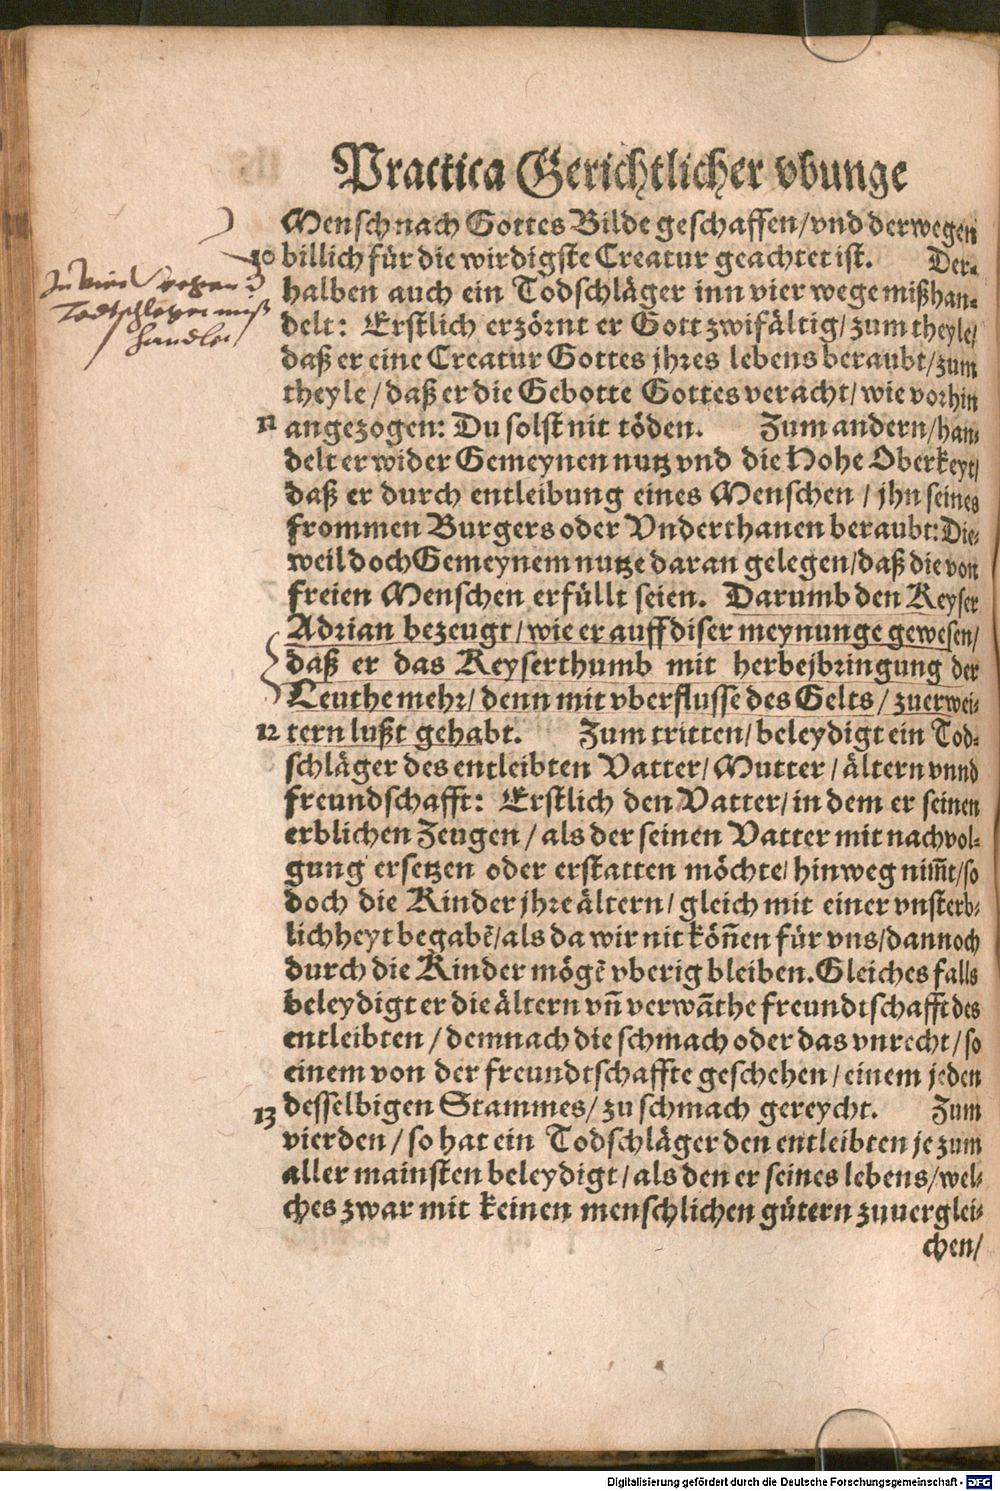 Practica Gerichtlicher vbunge
Mensch nach Gottes Bilde geschaffen/vnd derwegen
10 billich für die wirdigste Creatur geachtet ist. Der-
halben auch ein Todschläger inn vier wege mißhan-
delt: Erstlich erzörnt er Gott zwifältig/zum theyle/
daß er eine Creatur Gottes jhres lebens beraubt/zum
theyle/daß er die Gebotte Gottes veracht/wie vorhin
11 angezogen: Du solst nit töden. Zum andern/han-
delt er wider Gemeynen nutz vnd die Hohe Oberkeyt/
daß er durch entleibung eines Menschen/jhn seines
frommen Burgers oder Vnderthanen beraubt: Die-
weil doch Gemeynem nutze daran gelegen/daß die von
freien Menschen erfüllt seien. Darumb den Keyser
Adrian bezeugt/wie er auff diser meynunge gewesen/
daß er das Keyserthumb mit herbejbringung der
Leuthe mehr/denn mit vberflusse des Gelts/zuerwei-
12 tern lußt gehabt. Zum tritten/beleydigt ein Tod-
schläger des entleibten Vatter/Mutter/ältern vnnd
freundschafft: Erstlich den Vatter/in dem er seinen
erblichen Zeugen/als der seinen Vatter mit nachvol-
gung ersetzen oder erstatten möchte/hinweg nim̄t/so
doch die Kinder jhre ältern/gleich mit einer vnsterb-
lichheyt begabē/als da wir nit kön̄en für vns/dannoch
durch die Kinder mögē vberig bleiben. Gleiches falls
beleydigt er die ältern vn̄ verwāthe freundtschafft des
entleibten/demnach die schmach oder das vnrecht/so
einem von der freundtschaffte geschehen/einem jeden
13 desselbigen Stammes/zu schmach gereycht. Zum
vierden/so hat ein Todschläger den entleibten je zum
aller mainsten beleydigt/als den er seines lebens/wel-
ches zwar mit keinen menschlichen gütern zuuerglei-
chen/
Todtschleger miß
handlet
Digitalisierung gefördert durch die Deutsche Forschungsgemeinschaft - DFG